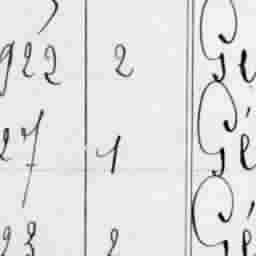 922 2 Gé
27 1 Gé
23 2 Gé